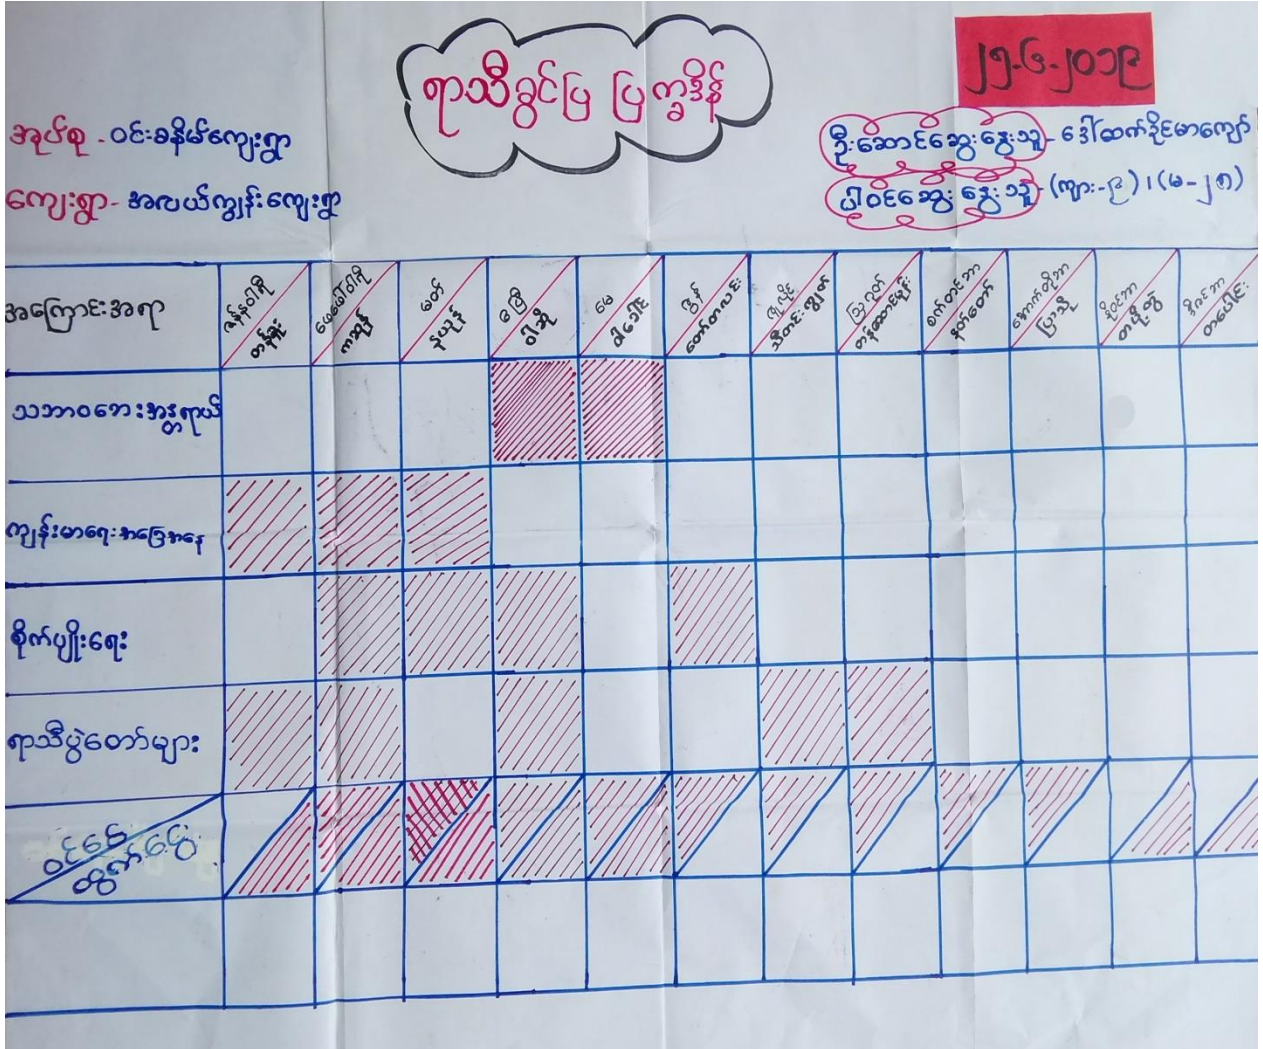 ရာသီခွင်ပြ ပြက္ခဒိန်
၂၅-၆-၂၀၁၉
အုပ်စု - ဝင်းခနိမ်ကျေးရွာ
ကျေးရွာ - အလယ်ကျွန်းကျေးရွာ
ဦးဆောင်ဆွေးနွေးသူ - ဒေါ်ထက်ခိုင်မာကျော်
ပါဝင်ဆွေးနွေးသူ - (ကျား-၉)၊ (မ-၂၈)
အကြောင်းအရာ
ဇန်နဝါရီ
တန်ခူး
ဖေဖော်ဝါရီ
ကဆုန်
မတ်
နယုန်
ဧပြီ
ဝါဆို
မေ
ဝါခေါင်
ဇွန်
တော်တလင်း
ဇူလိုင်
သီတင်းကျွတ်
ဩဂုတ်
တန်ဆောင်မုန်း
စက်တင်ဘာ
နတ်တော်
အောက်တိုဘာ
ပြာသို
နိုဝင်ဘာ
တပို့တွဲ
ဒီဇင်ဘာ
တပေါင်း
သဘာဝဘေးအန္တရာယ်
ကျန်းမာရေးအခြေအနေ
စိုက်ပျိုးရေး
ရာသီပွဲတော်များ
ဝင်ငွေ
ထွက်ငွေ